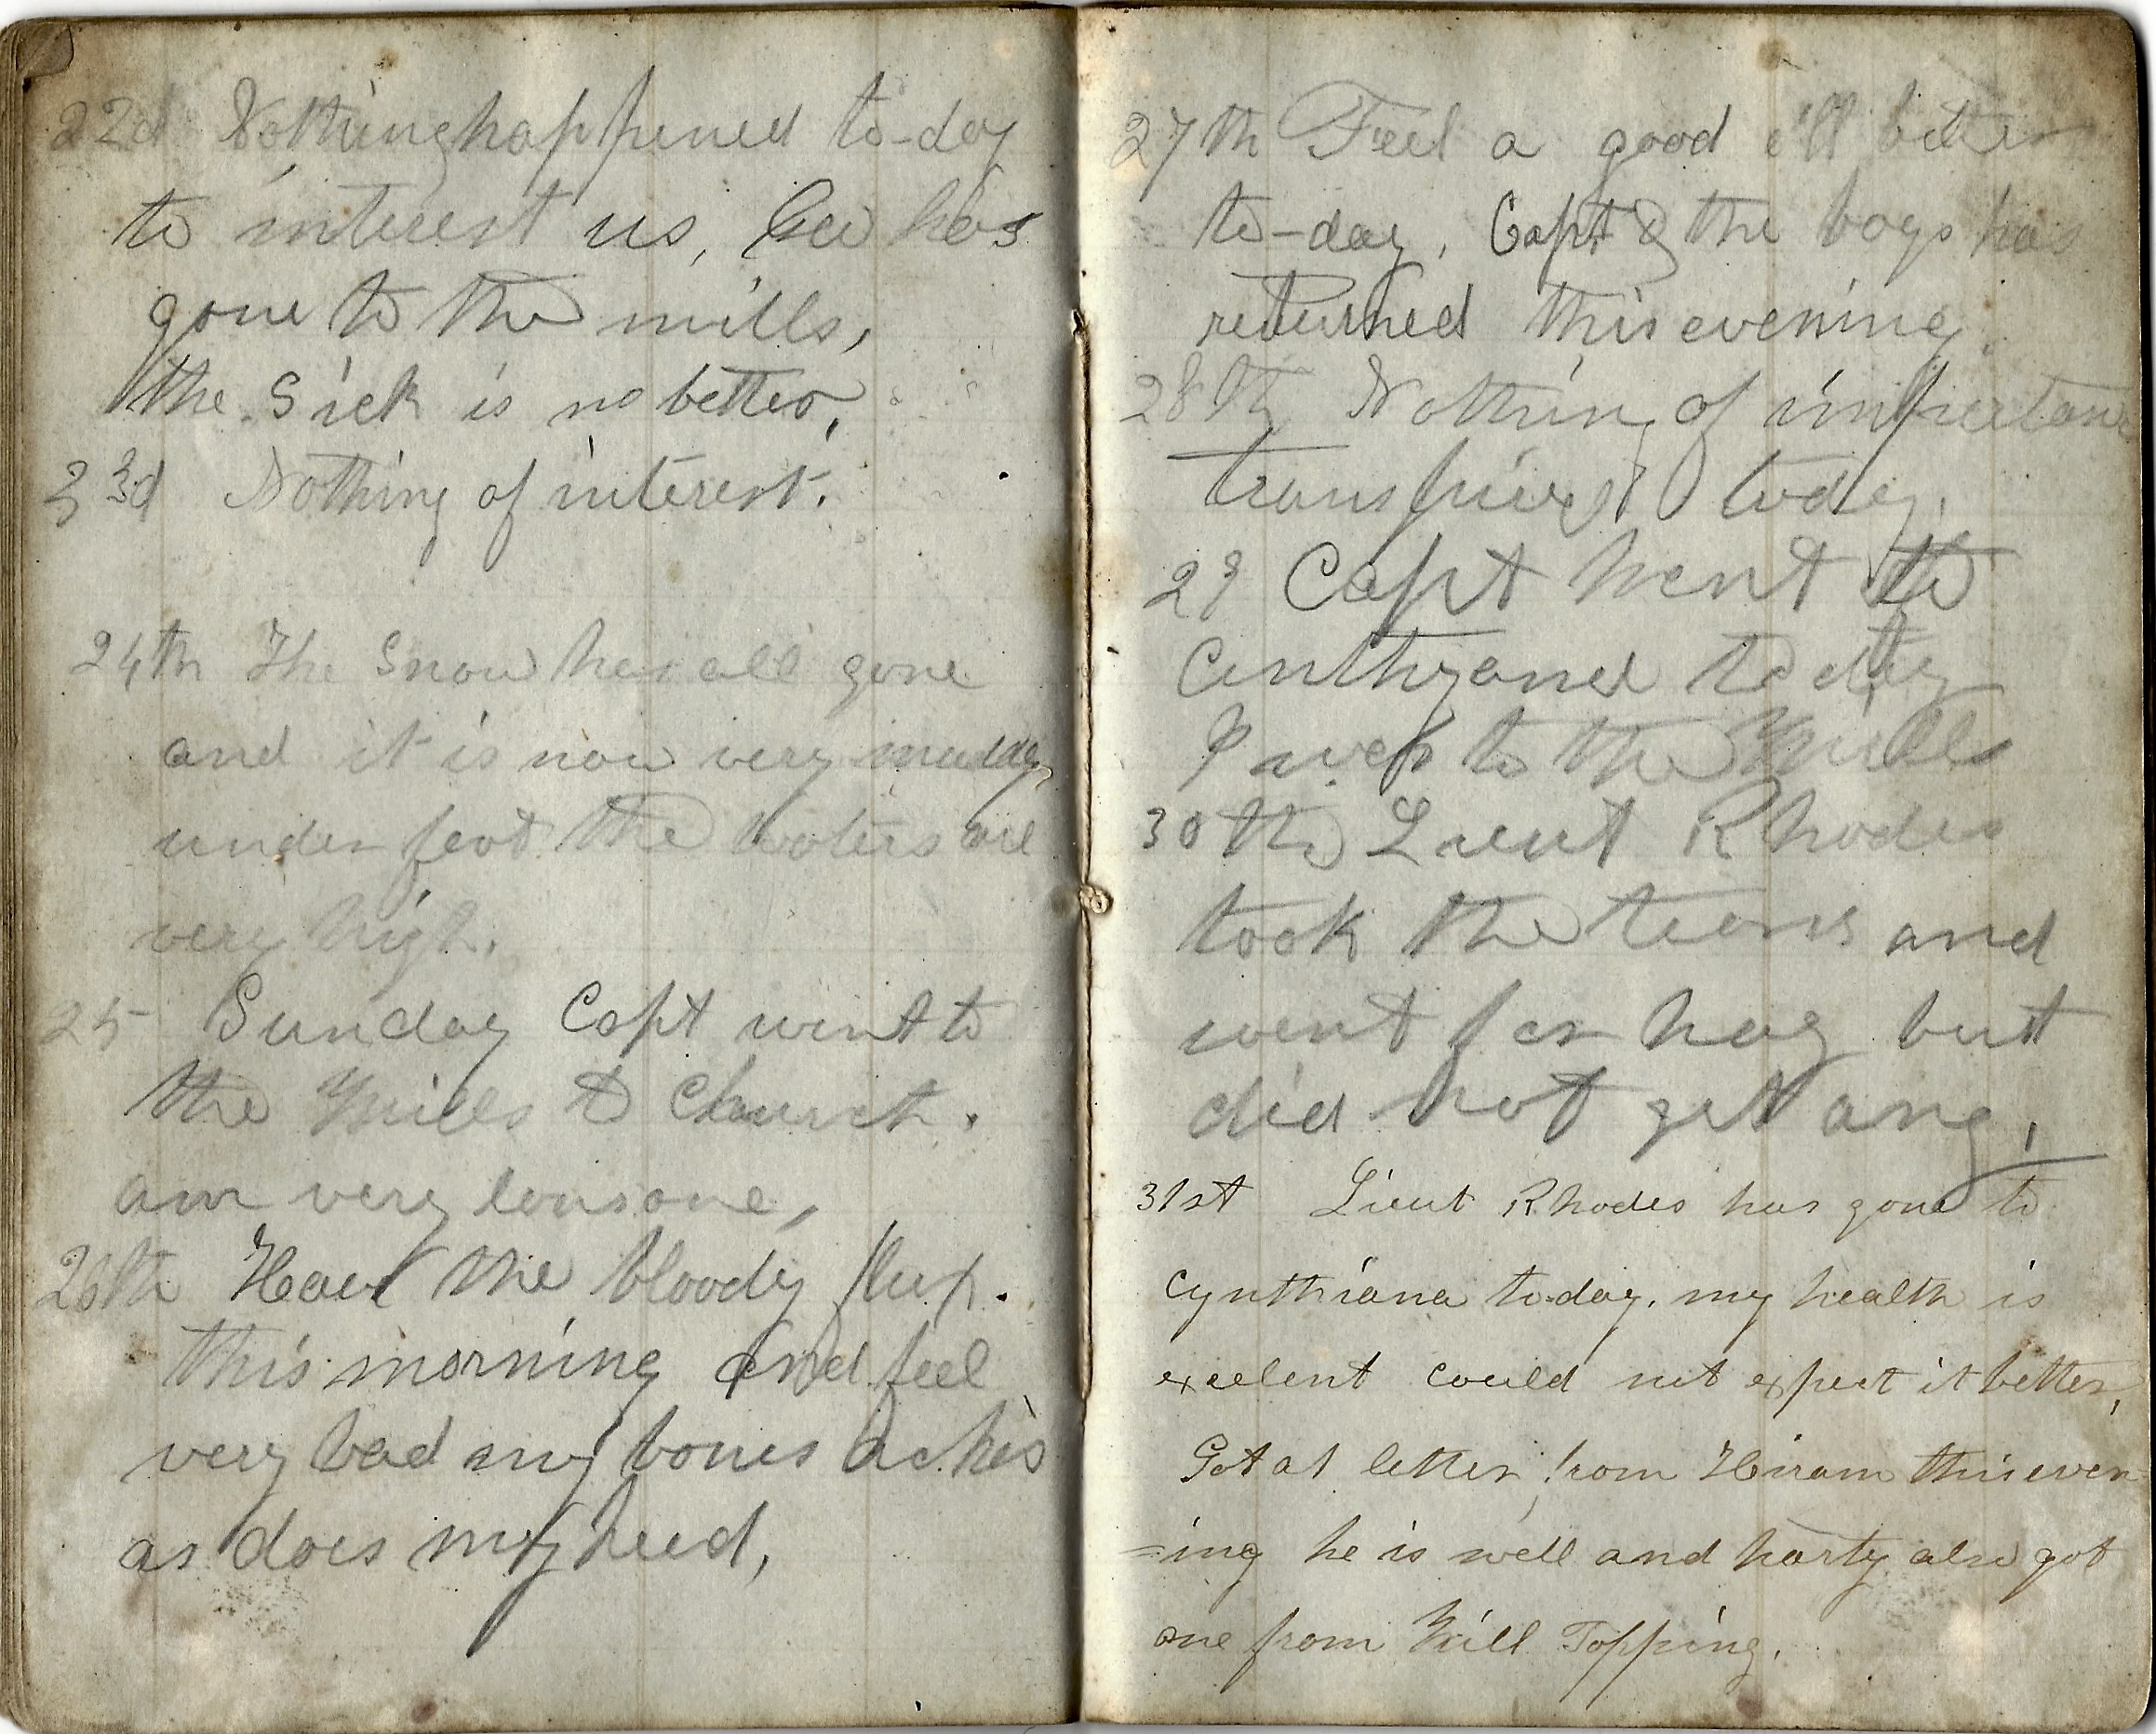 22d Nothing happened to-day
to interest us, Geo has
gone to the mills,
the Sick is no better,
23d Nothing of interest.
24th The Snow has all gone
and it is now very muddy
under foot the waters are
very high.
25 Sunday Capt went to
the Mills to Church.
am very lonsome,
26th Have the bloody flux.
this morning and feel
very bad my bones Aches
as does my head,
27th Feel a good 'ell better
to-day, Capt & the boys has
returned this evening.
28th Nothing of importance
transpired today.
29 Capt went to
Cinthyana to day
I went to the Mills
30th Lieut Rhodes
took the teams and
went for hay but
did not get any,
31st Lieut Rhodes has gone to
Cynthiana to-day. my health is
excelent could not expect it better,
Got a letter from Hiram this even
=ing he is well and harty also got
one from Will Topping.